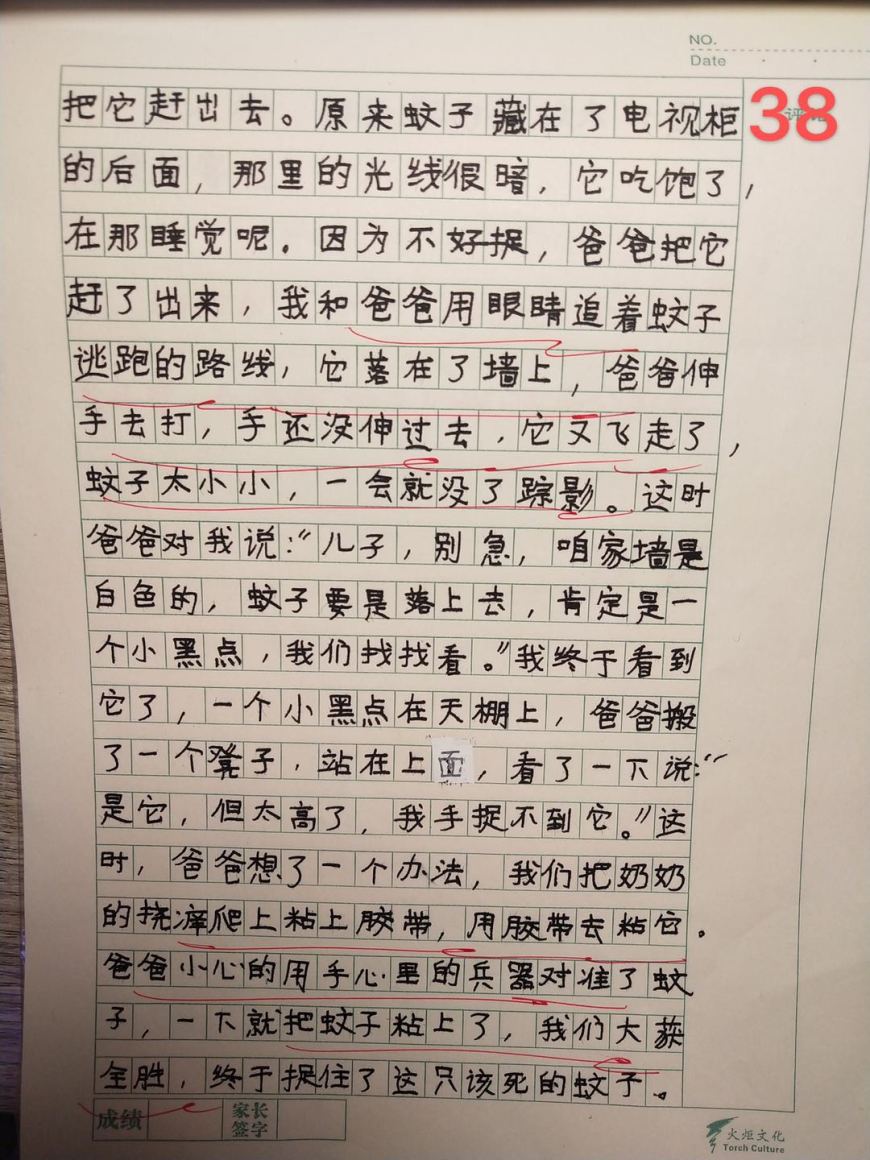 NO.
Date
38
把它赶出去。原来蚊子藏在了电视柜
的后面，那里的光线很暗，它吃饱了，
在那睡觉呢。因为不好捉，爸爸把它
赶了出来，我和爸爸用眼睛追着蚊子
逃跑的路线，它落在了墙上，爸爸伸
手去打，手还没伸过去，它又飞走了，
蚊子太小小，一会就没了踪影。这时
爸爸对我说：“儿子，别急，咱家墙是
白色的，蚊子要是落上去，肯定是一
个小黑点，我们找找看。”我终于看到
它了，一个小黑点在天棚上，爸爸搬
了一个凳子，站在上面，看了一下说：“
是它，但太高了，我手捉不到它。”这
时，爸爸想了一个办法，我们把奶奶
的挠痒爬上粘上胶带，用胶带去粘它。
爸爸小心的用手心里的兵器对准了蚊
子，一下就把蚊子粘上了，我们大获
全胜，终于捉住了这只该死的蚊子。
成绩 家长签字
火炬文化
Torch Culture